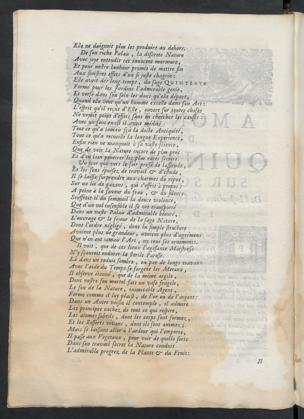 Elle ne daignoit plus les produire au dehors.
De son riche Palais, la discrete Nature
Avec joye entendit cet innocent murmure,
Et pour nostre bonheur promit de mettre fin
Aux sinistres effets d'un si juste chagrin:
Elle avoit dés long-temps, du sage QUINTINYE
Formé pour les Jardins l'admirable genie,
Et versé dans son sein les dons qu'elle départ,
Quand elle veut qu'un homme excelle dans son Art:
L'esprit qu'il reçut d'Elle, ouvert sur toutes choses
Ne voyoit point d'effets sans en chercher les causes
Avec un soin exact il avoit
Tout ce qu'a jamais sçû la docte Antiquité,
Tout ce qu'a recueilli la longue Experience,
Enfin rien ne manquoit à sa vaste science,
Que de voir la Nature encore de plus prés
Et d'en bien penetrer les plus rares secrets.
Un jour que vers le soir pressé de lassitude,
Et les sens épuisez de travail & d'étude,
Il se laissa surprendre aux charmes du repos
Sur un lit de gazons, qui s'offrit à propos:
A peine à la faveur du frais & du silence,
Joüissoit-il du sommeil la douce violence,
Que d'un vol insensible il se vit transporté
Dans un vaste Palais d'admirable beauté,
L'ouvrage & le sejour de la sage Nature,
Dont l'ordre negligé, dont la simple structure
Avoient plus de grandeur, avoient plus d'agrément
Que n'en eut jamais l'Art, en tous ses ornements.
Il voit, que de ces lieux l'agissante Maistresse
N'y sçauroit endurer la sterile Paresse.
Là dans un reduit sombre, un peu de longs travaux
Avec l'aide du Temps se forgent les Metaux,
Il observe étonné, que de la mesme argile,
Dont nostre sens mortel fait un vase fragile,
Le feu de la Nature, inimitable Agent,
Forme comme il luy plaist, de l'or ou de l'argent:
Dans un Autre voisin il contemple, il admire
Les principes cachez, de tout ce qui respire,
Les atomes subtils, dont les corps sont formez,
Et les Ressorts vivants, dont ils sont animez;
Mais se laissant aller à l'ardeur qui l'emporte,
Il passe aux Vegetaux, pour voir de quelle sorte
Dans son travail secret la Nature conduit
L'admirable progrez, de la Plante & du Fruit:
Il